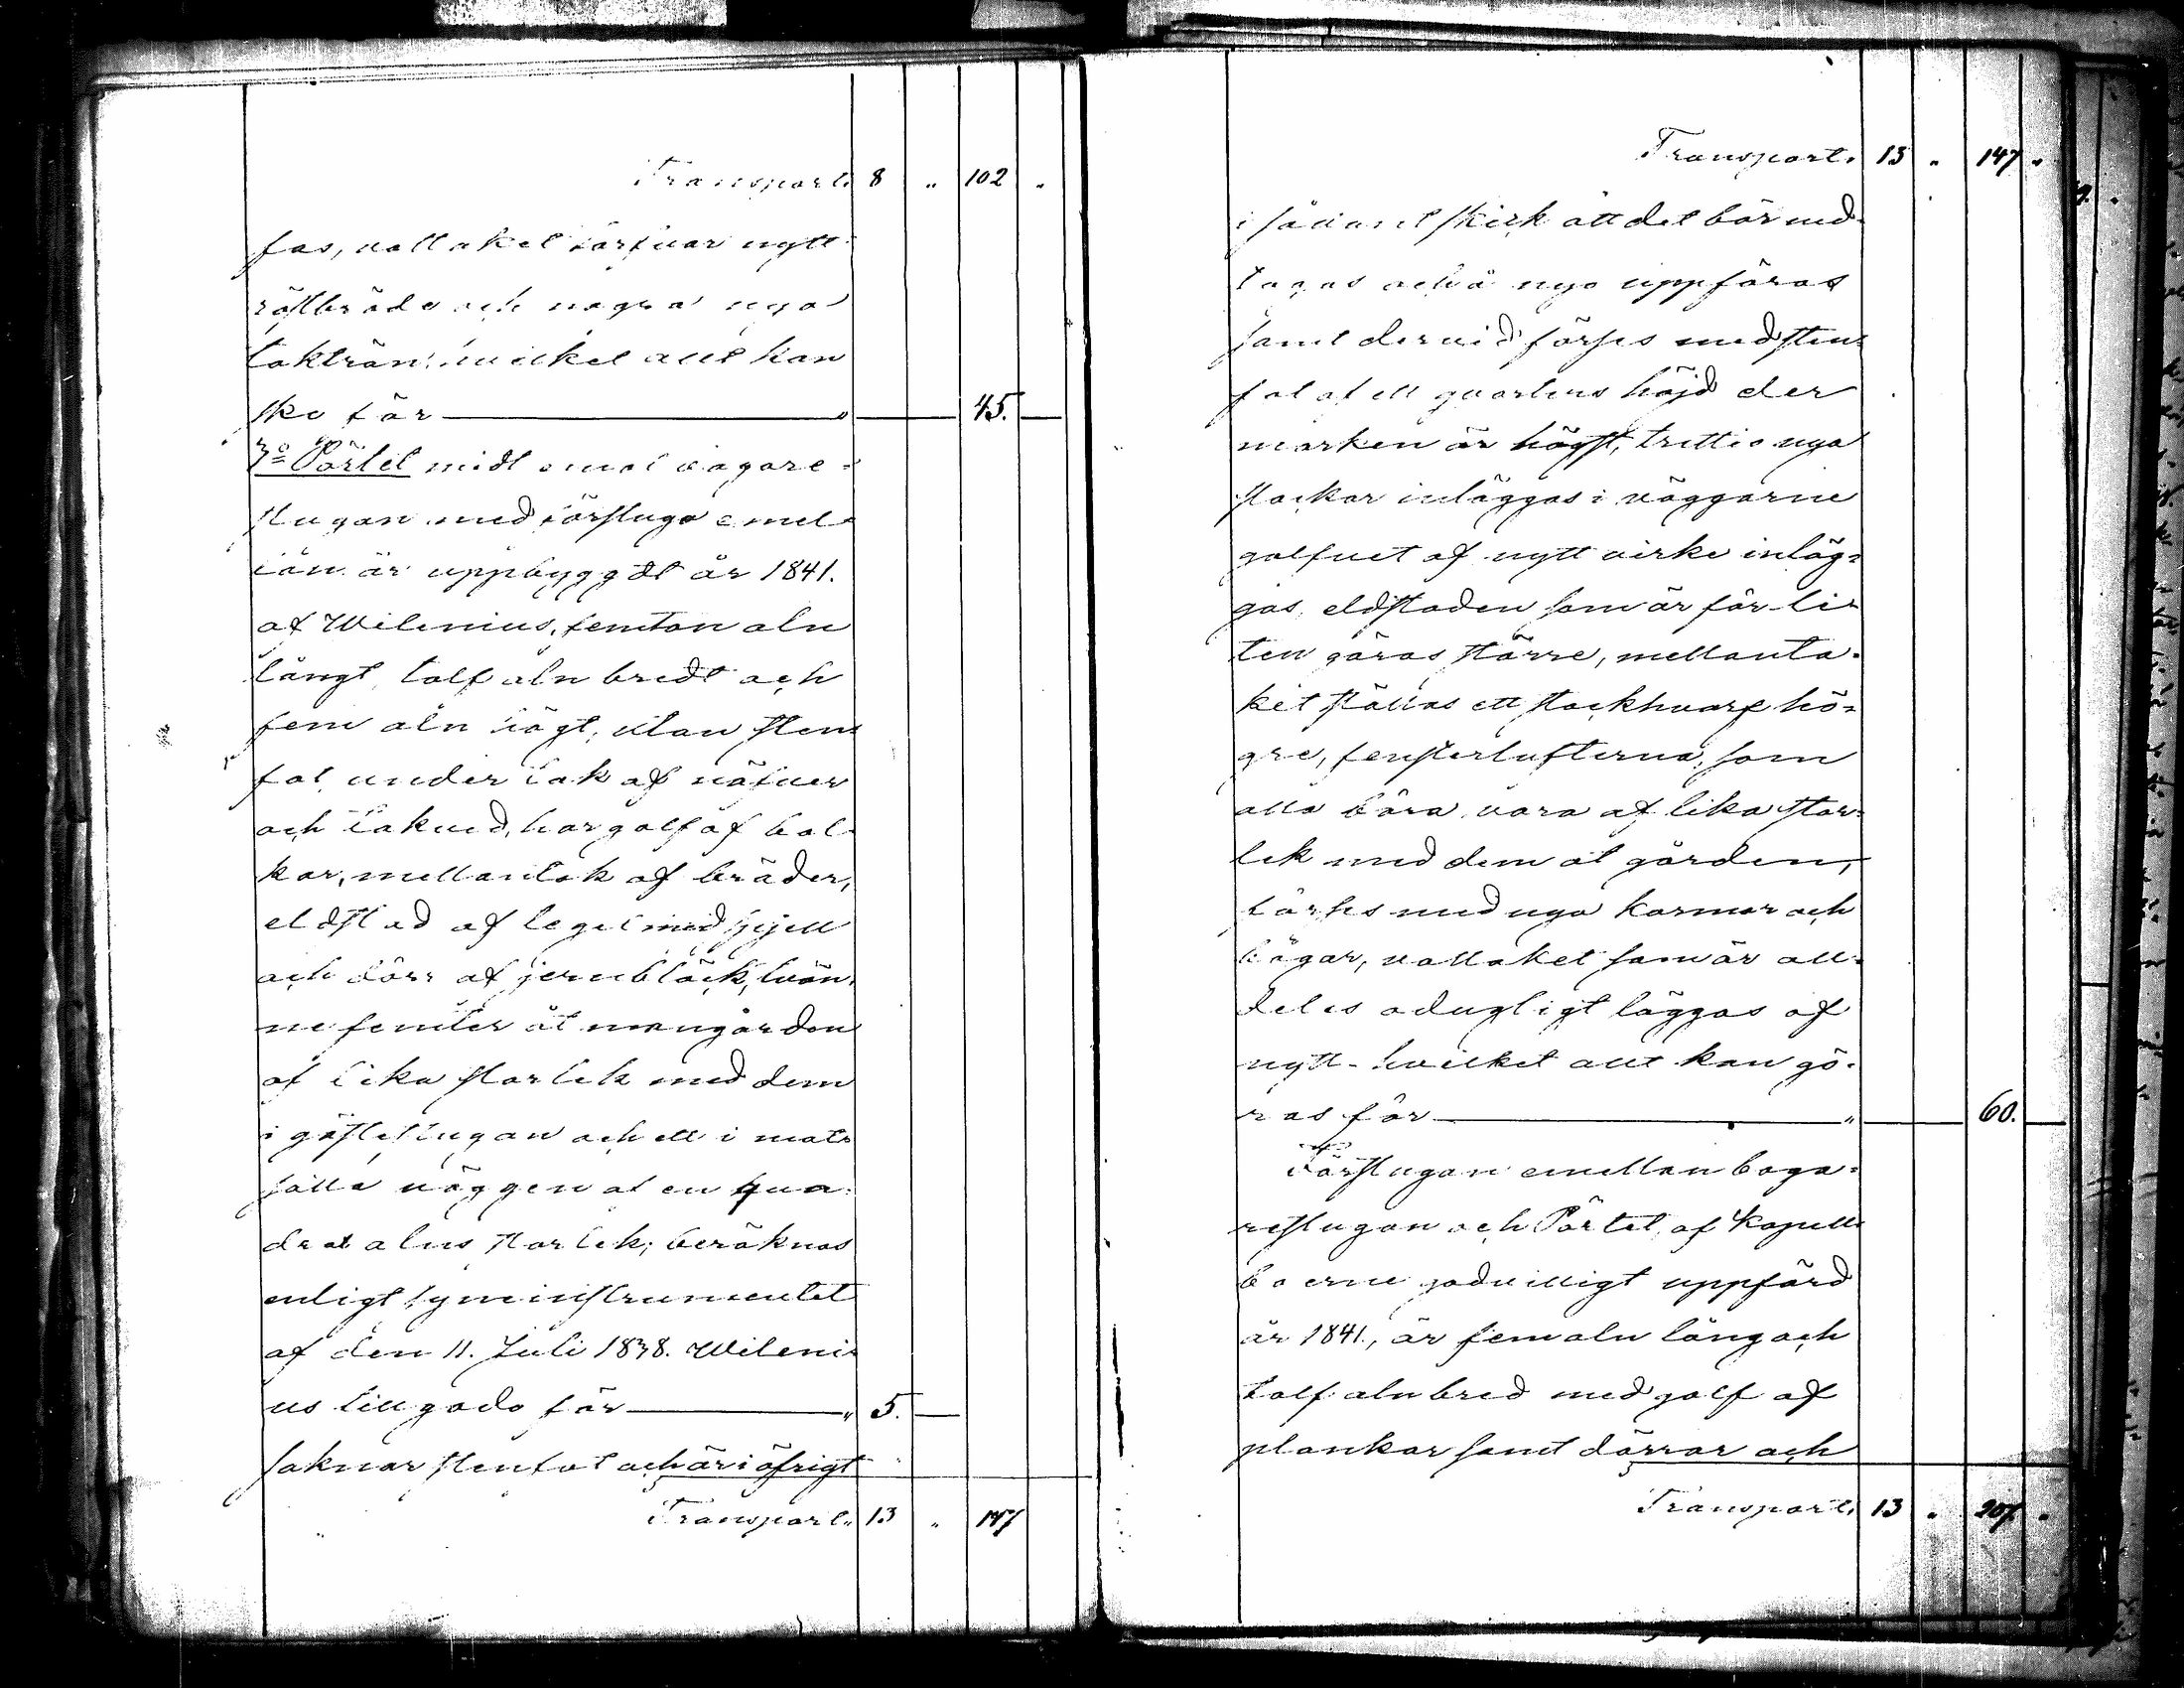 Transport. 8 " 102 "
fas, vattaket behöfver nytt
röstbräde och några nya
takträn, hvilket allt kan
ske för " 45.
7o Pörtet midt emot bagare-
stugan med förstuga emel-
lan är uppbyggdt år 1841.
af Wilenius, femton aln
långt, tolf aln bredt och
fem aln högt, utan sten-
fot under tak af näfver
och takved, har golf af bal-
kar, mellantak af bräder,
eldstad af tegel med spjell
och dörr af jernbläck, tvän-
ne fenster åt mangården
af lika storlek med dem
i gästestugan och ett i mot-
satta väggen af en qva-
drat alns storlek; beräknas
enligt syneinstrumentet
af den 11. Juli 1838. Wileni-
us till godo för " 5.
saknar stenfot och är i öfrigt
Transport. 13 " 147
Transport. 13 " 147 "
i sådant skick att det bör ned-
tagas och å nyo uppföras
samt dervid förses med sten-
fot af ett qvarters höjd der
marken är högst, trettio nya
stockar inläggas i väggarne
golfvet af nytt virke inläg-
gas, eldstaden som är för li-
ten göras större, mellanta-
ket ställas ett stockhvarf hö-
gre, fensterlufterna, som
alla böra vara af lika stor-
lek med dem åt gården,
förses med nya karmar och
bågar, vattaket som är all-
deles odugligt läggas af
nytt - hvilket allt kan gö-
ras för " 60.
Förstugan emellan baga-
restugan och Pörtet, af Kapell-
boerne godvilligt uppförd
år 1841, är fem aln lång och
tolf aln bred med golf af
plankor samt dörrar och
Transport. 13 " 207. "